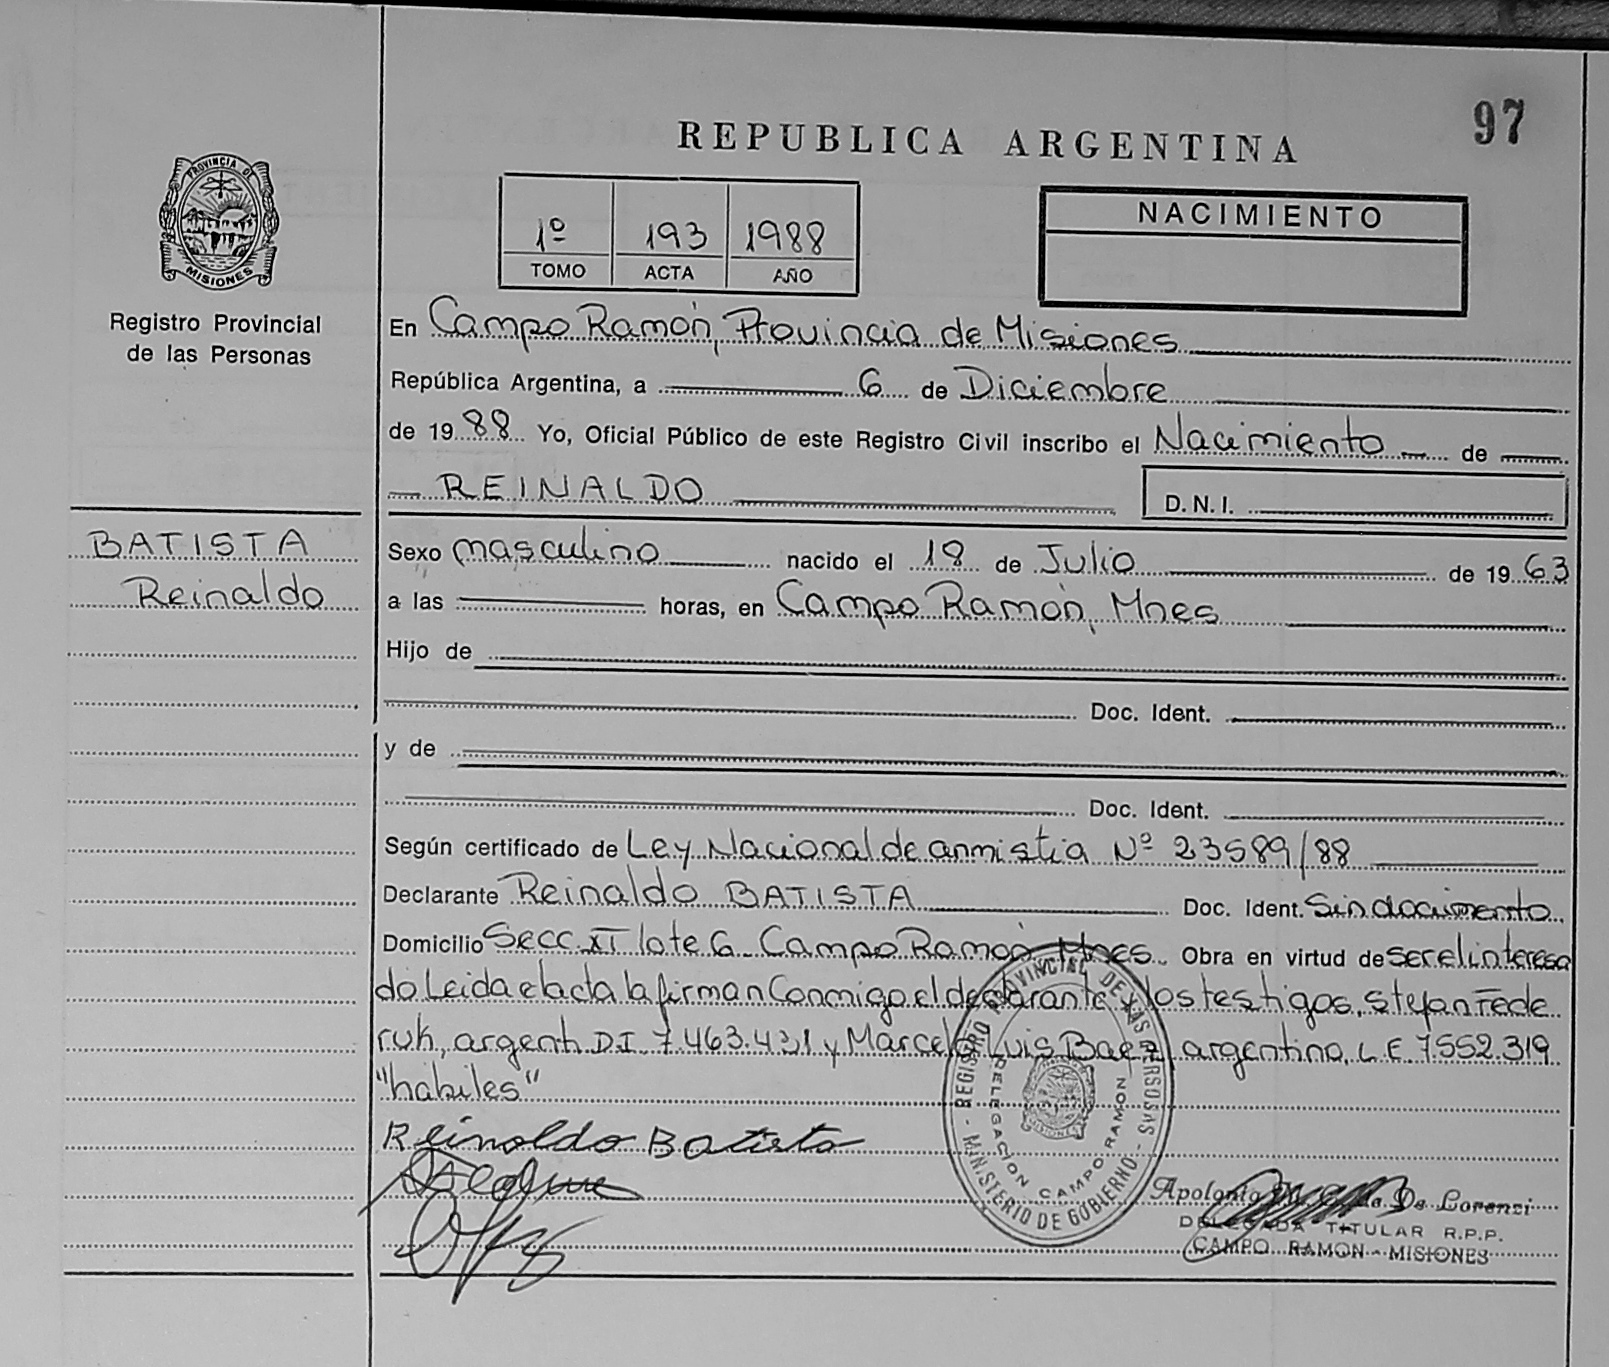 97
REPUBLICA ARGENTINA
PROVINCIA DE
MISIONES
Registro Provincial
de las Personas
1º 193 1988
TOMO ACTA AÑO
NACIMIENTO
En Campo Ramón, Provincia de Misiones
República Argentina, a 6 de Diciembre
de 1988 Yo, Oficial Público de este Registro Civil inscribo el Nacimiento de
REINALDO D.N.I.
BATISTA
Reinaldo
Sexo masculino nacido el 18 de Julio de 1963
a las horas, en Campo Ramón, Mnes
Hijo de
Doc. Ident.
y de
Doc. Ident.
Según certificado de Ley Nacional de anmistia Nº 23589/88
Declarante Reinaldo BATISTA Doc. Ident. Sin documento
Domicilio Secc. XI lote 6 Campo Ramón Mnes. Obra en virtud de ser el interesa
do Leida el acta la firman Conmigo el declarante y los testigos, Stefan Fede
ruk, argent. D.I. 7.463.431 y Marcelo Luis Baez, argentino, L.E. 7552.319
"hábiles"
Reinaldo Batista
REGISTRO PROVINCIAL DE LAS PERSONAS
- MINISTERIO DE GOBIERNO -
DELEGACION CAMPO RAMON
MISIONES
Apolonia de De Lorenzi
DELEGADA TITULAR R.P.P.
CAMPO RAMON - MISIONES